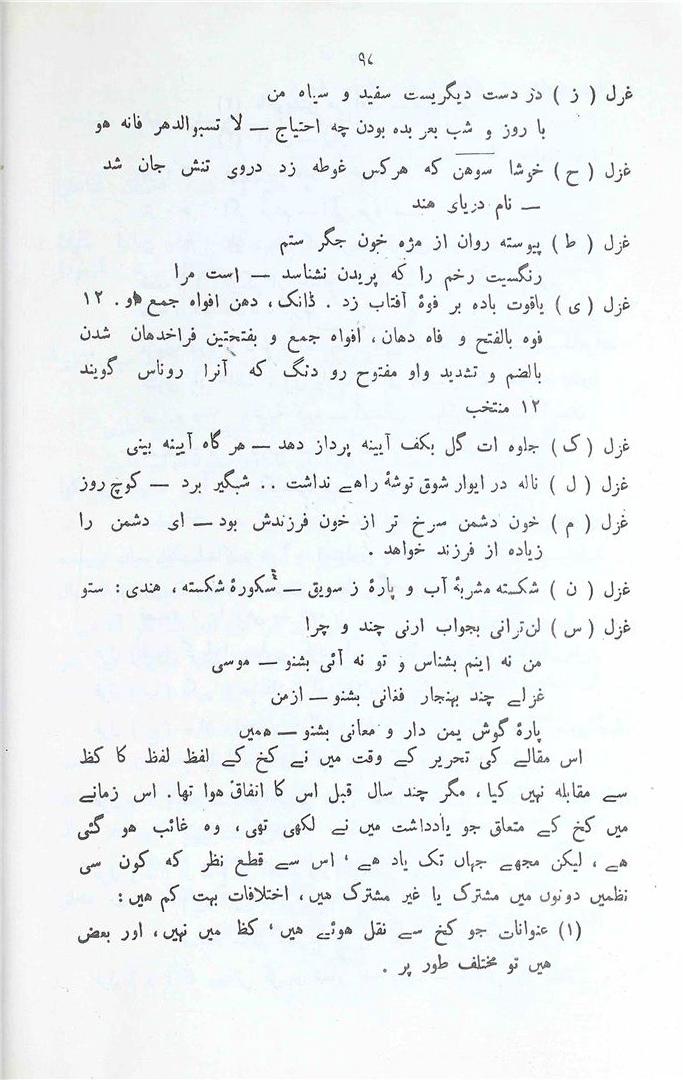 ۹۸
غزل ( ز ) دز دست دیگریست سفید و سیاه من
با روز و شب بعر بده بودن چه احتیاج — لا تسبوالدهر فانه هو
غزل ( ح ) خوشا سوهن که هرکس غوطه زد دروی تنش جان شد
— نام دریای هند
غزل ( ط ) پیوسته روان از مژه خون جگر ستم
رنگسیت رخم را که پریدن نشناسد — است مرا
غزل ( ی ) یاقوت باده بر فوهٔ آفتاب زد . ڈانک، دهن افواه جمع او . ۱۲
فوه بالفتح و فاه دهان، افواه جمع و بفتحتین فراخدهان شدن
بالضم و تشدید واو مفتوح رو دنگ که آنرا روناس گویند
۱۲ منتخب
غزل ( ک ) جلوه ات گل بکف آیینه پرداز دهد — هر گاه آیینه بینی
غزل ( ل ) ناله در ایوار شوق توشهٔ راهے نداشت . . شبگیر برد — کوچ روز
غزل ( م ) خون دشمن سرخ تر از خون فرزندش بود — ای دشمن را
زیاده از فرزند خواهد .
غزل ( ن ) شکسته مشربهٔ آب و پارهٔ ز سویق — سکورهٔ شکسته، هندی : ستو
غزل ( س ) لن ترانی بجواب ارنی چند و چرا
من نه اینم بشناس و تو نه آئی بشنو — موسی
غزلے چند بهنجار فغانی بشنو — ازمن
پارهٔ گوش یمن دار و معانی بشنو — همیں
اس مقالے کی تحریر کے وقت میں نے کخ کے لفظ لفظ کا کظ
سے مقابله نہیں کیا، مگر چند سال قبل اس کا اتفاق هوا تها. اس زمانے
میں کخ کے متعلق جو یادداشت میں نے لکهی تهی، وه غائب هو گئی
هے، لیکن مجهے جہاں تک یاد هے، اس سے قطع نظر که کون سی
نظمیں دونوں میں مشترک یا غیر مشترک هیں، اختلافات بہت کم هیں :
(۱) عنوانات جو کخ سے نقل هوئے هیں، کظ میں نہیں، اور بعض
هیں تو مختلف طور پر .